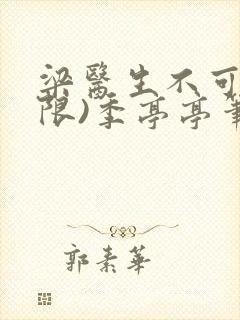 梁醫生不可
限)季亭亭筆
郭素華